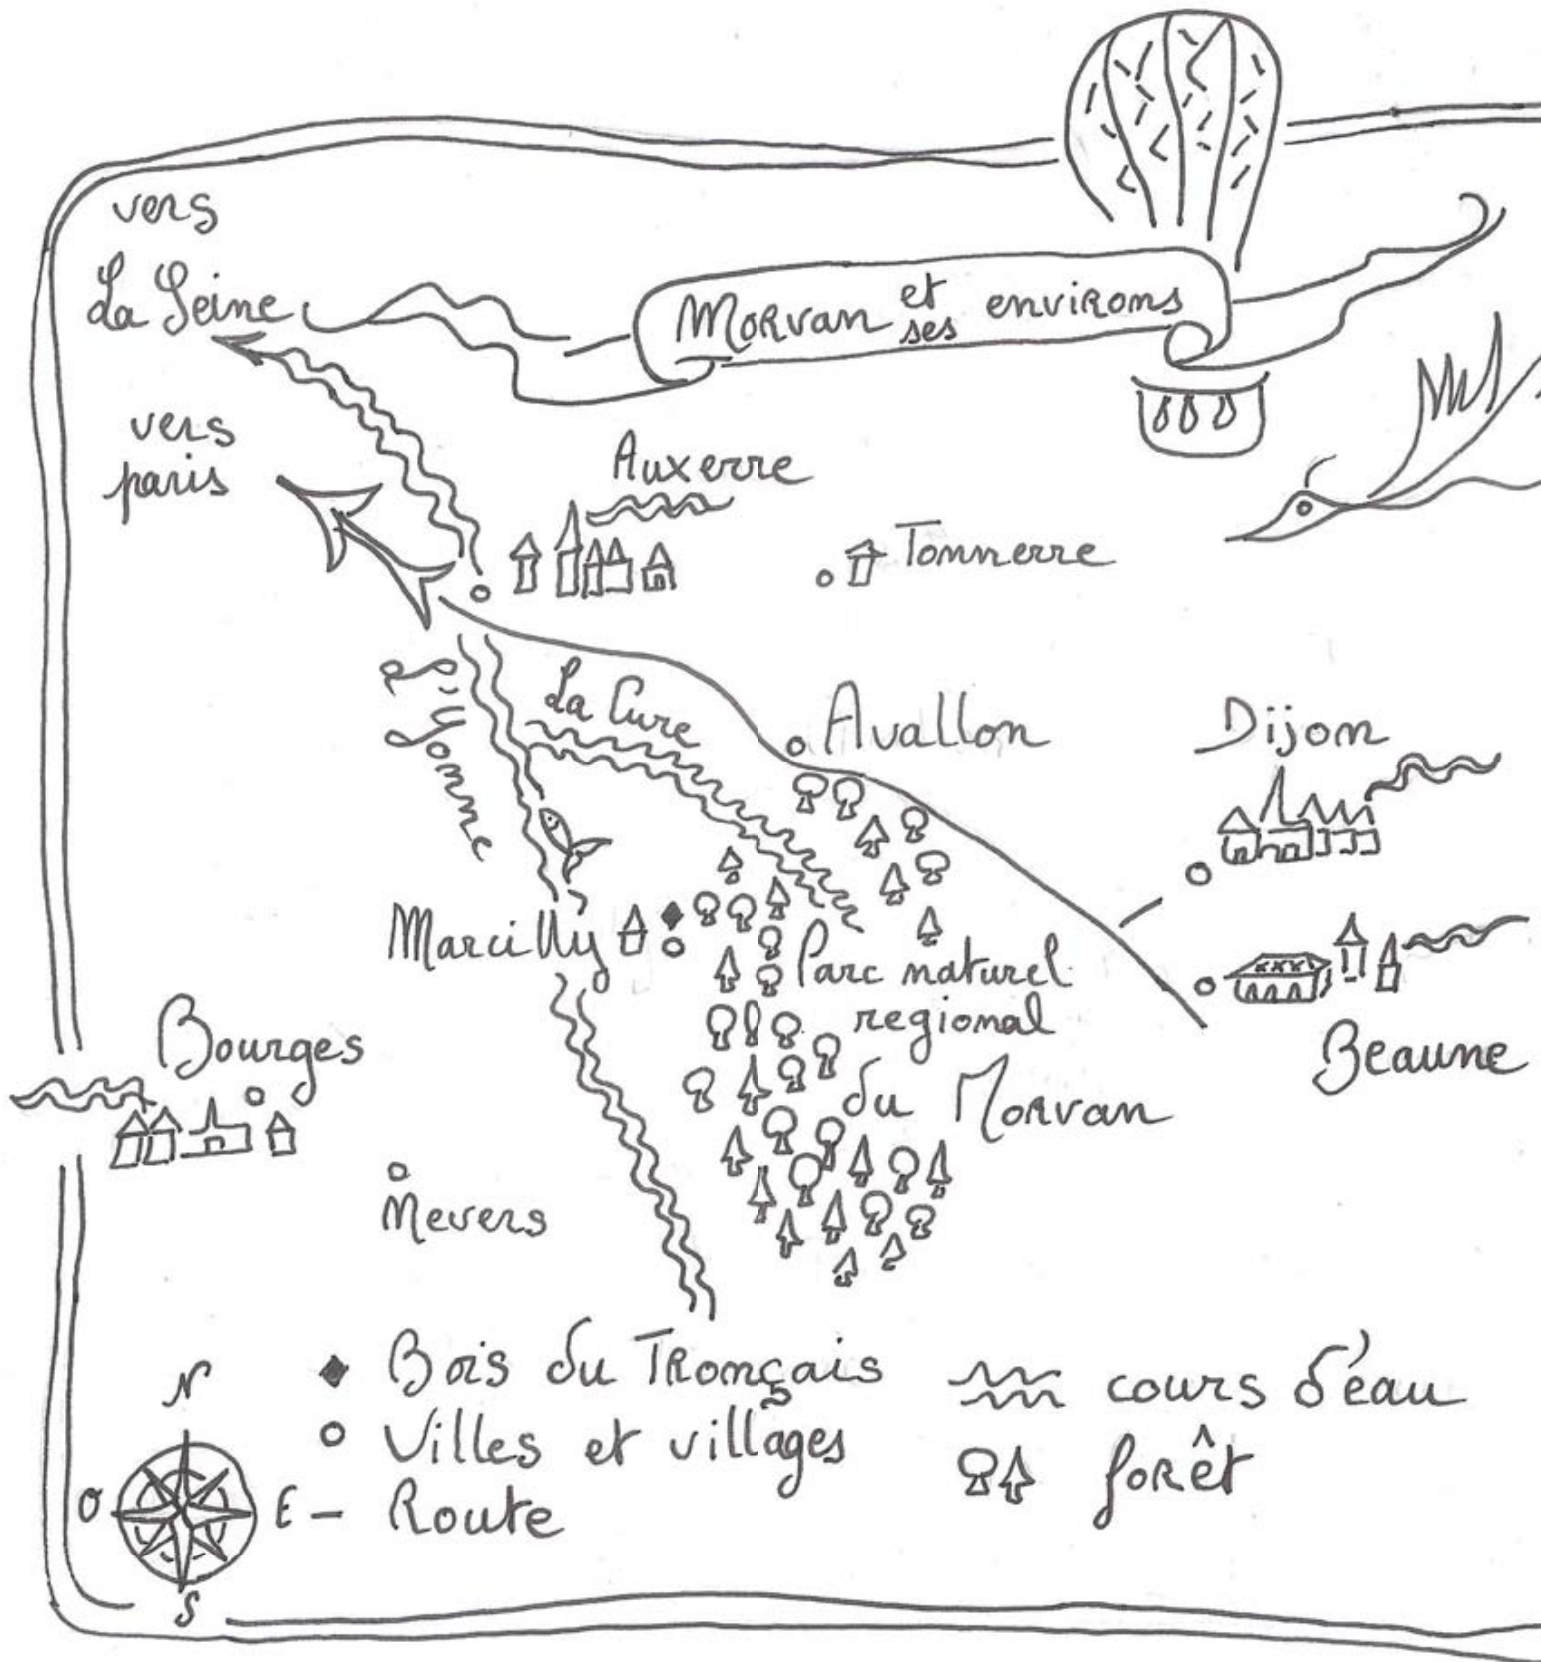 vers
La Seine
Morvan et ses environs
vers
paris
Auxerre
Tonnerre
L'Yonne
La Cure
Avallon
Dijon
Marcilly
Parc naturel
regional
du Morvan
Beaune
Bourges
Nevers
N
O
E
S
Bois du Tronçais
Villes et villages
Route
cours d'eau
forêt